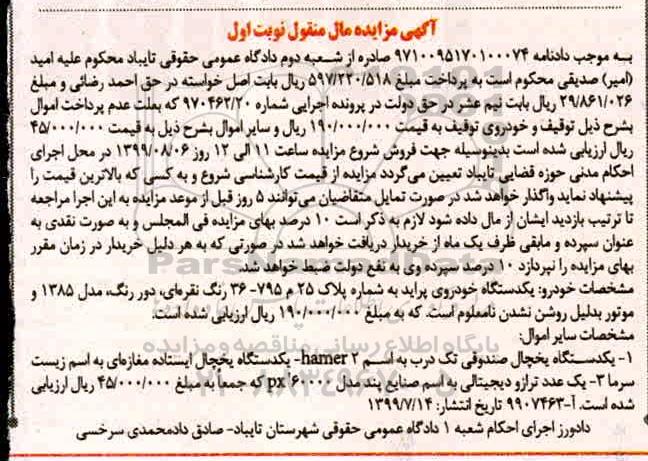 آگهی مزایده مال منقول نوبت اول
به موجب دادنامه ۹۷۱۰۰۹۵۱۷۰۱۰۰۰۷۴ صادره از شعبه دوم دادگاه عمومی حقوقی تایباد محکوم علیه امید
(امیر) صدیقی محکوم است به پرداخت مبلغ ۵۹۷/۲۲۰/۵۱۸ ریال بابت اصل خواسته در حق احمد رضائی و مبلغ
۲۹/۸۶۱/۰۲۶ ریال بابت نیم عشر در حق دولت در پرونده اجرایی شماره ۹۷۰۴۶۲/۲۰ که بعلت عدم پرداخت اموال
بشرح ذیل توقیف و خودروی توقیف به قیمت ۱۹۰/۰۰۰/۰۰۰ ریال و سایر اموال بشرح ذیل به قیمت ۴۵/۰۰۰/۰۰۰
ریال ارزیابی شده است بدینوسیله جهت فروش شروع مزایده ساعت ۱۱ الی ۱۲ روز ۱۳۹۹/۰۸/۰۶ در محل اجرای
احکام مدنی حوزه قضایی تایباد تعیین می‌گردد مزایده از قیمت کارشناسی شروع و به کسی که بالاترین قیمت را
پیشنهاد نماید واگذار خواهد شد در صورت تمایل متقاضیان می‌توانند ۵ روز قبل از موعد مزایده به این اجرا مراجعه
تا ترتیب بازدید ایشان از مال داده شود لازم به ذکر است ۱۰ درصد بهای مزایده فی المجلس و به صورت نقدی به
عنوان سپرده و مابقی ظرف یک ماه از خریدار دریافت خواهد شد در صورتی که به هر دلیل خریدار در زمان مقرر
بهای مزایده را نپردازد ۱۰ درصد سپرده وی به نفع دولت ضبط خواهد شد.
مشخصات خودرو: یکدستگاه خودروی پراید به شماره پلاک ۲۵ م ۷۹۵- ۳۶ رنگ نقره‌ای، دور رنگ، مدل ۱۳۸۵ و
موتور بدلیل روشن نشدن نامعلوم است. که به مبلغ ۱۹۰/۰۰۰/۰۰۰ ریال ارزیابی شده است.
مشخصات سایر اموال:
۱- یکدستگاه یخچال صندوقی تک درب به اسم hamer ۲- یکدستگاه یخچال ایستاده مغازه‌ای به اسم زیست
سرما ۳- یک عدد ترازو دیجیتالی به اسم صنایع پند مدل px ۶۰۰۰۰ که جمعاً به مبلغ ۴۵/۰۰۰/۰۰۰ ریال ارزیابی
شده است. آ-۹۹۰۷۴۶۳ تاریخ انتشار: ۱۳۹۹/۷/۱۴
دادورز اجرای احکام شعبه ۱ دادگاه عمومی حقوقی شهرستان تایباد- صادق دادمحمدی سرخسی
ParsNamadData
پایگاه اطلاع رسانی مناقصه و مزایده